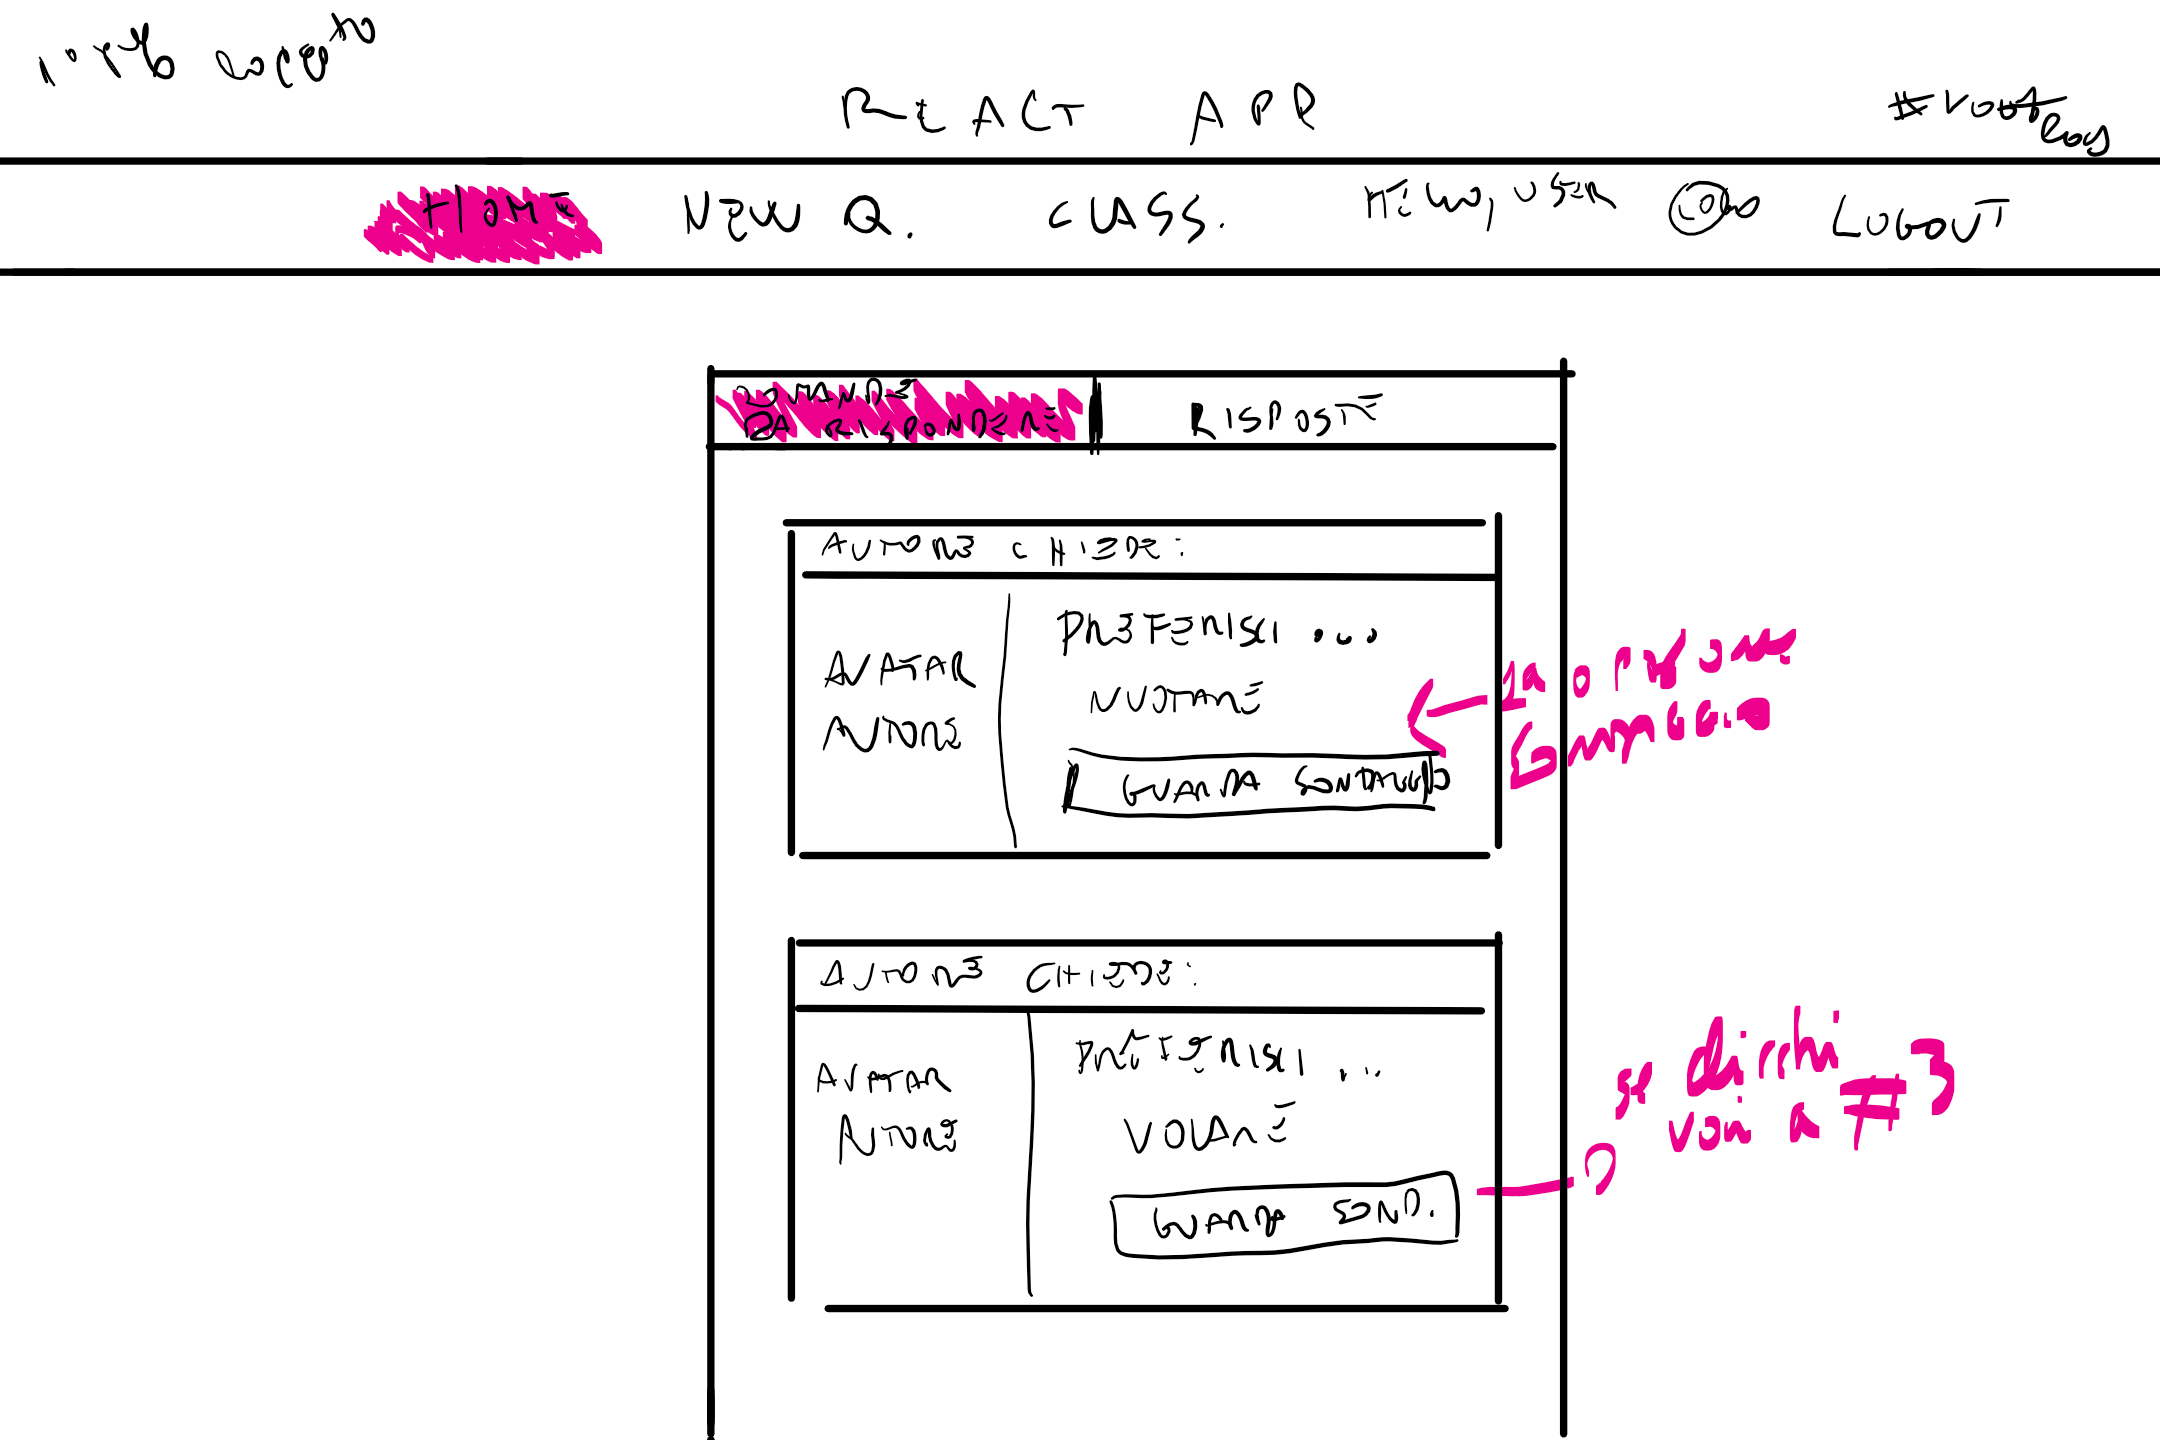 REACT APP
HOME NEW Q. CLASS. HELLO, USER LOGO LOGOUT
DOMANDE
DA RISPONDERE
RISPOSTE
AUTORE CHIEDE:
AVATAR
AUTORE
PREFERISCI ...
NUOTARE
GUARDA SONDAGGIO
1a opzione
sondaggio
AUTORE CHIEDE:
AVATAR
AUTORE
PREFERISCI ...
VOLARE
GUARDA SOND.
se clicchi
vai a #3